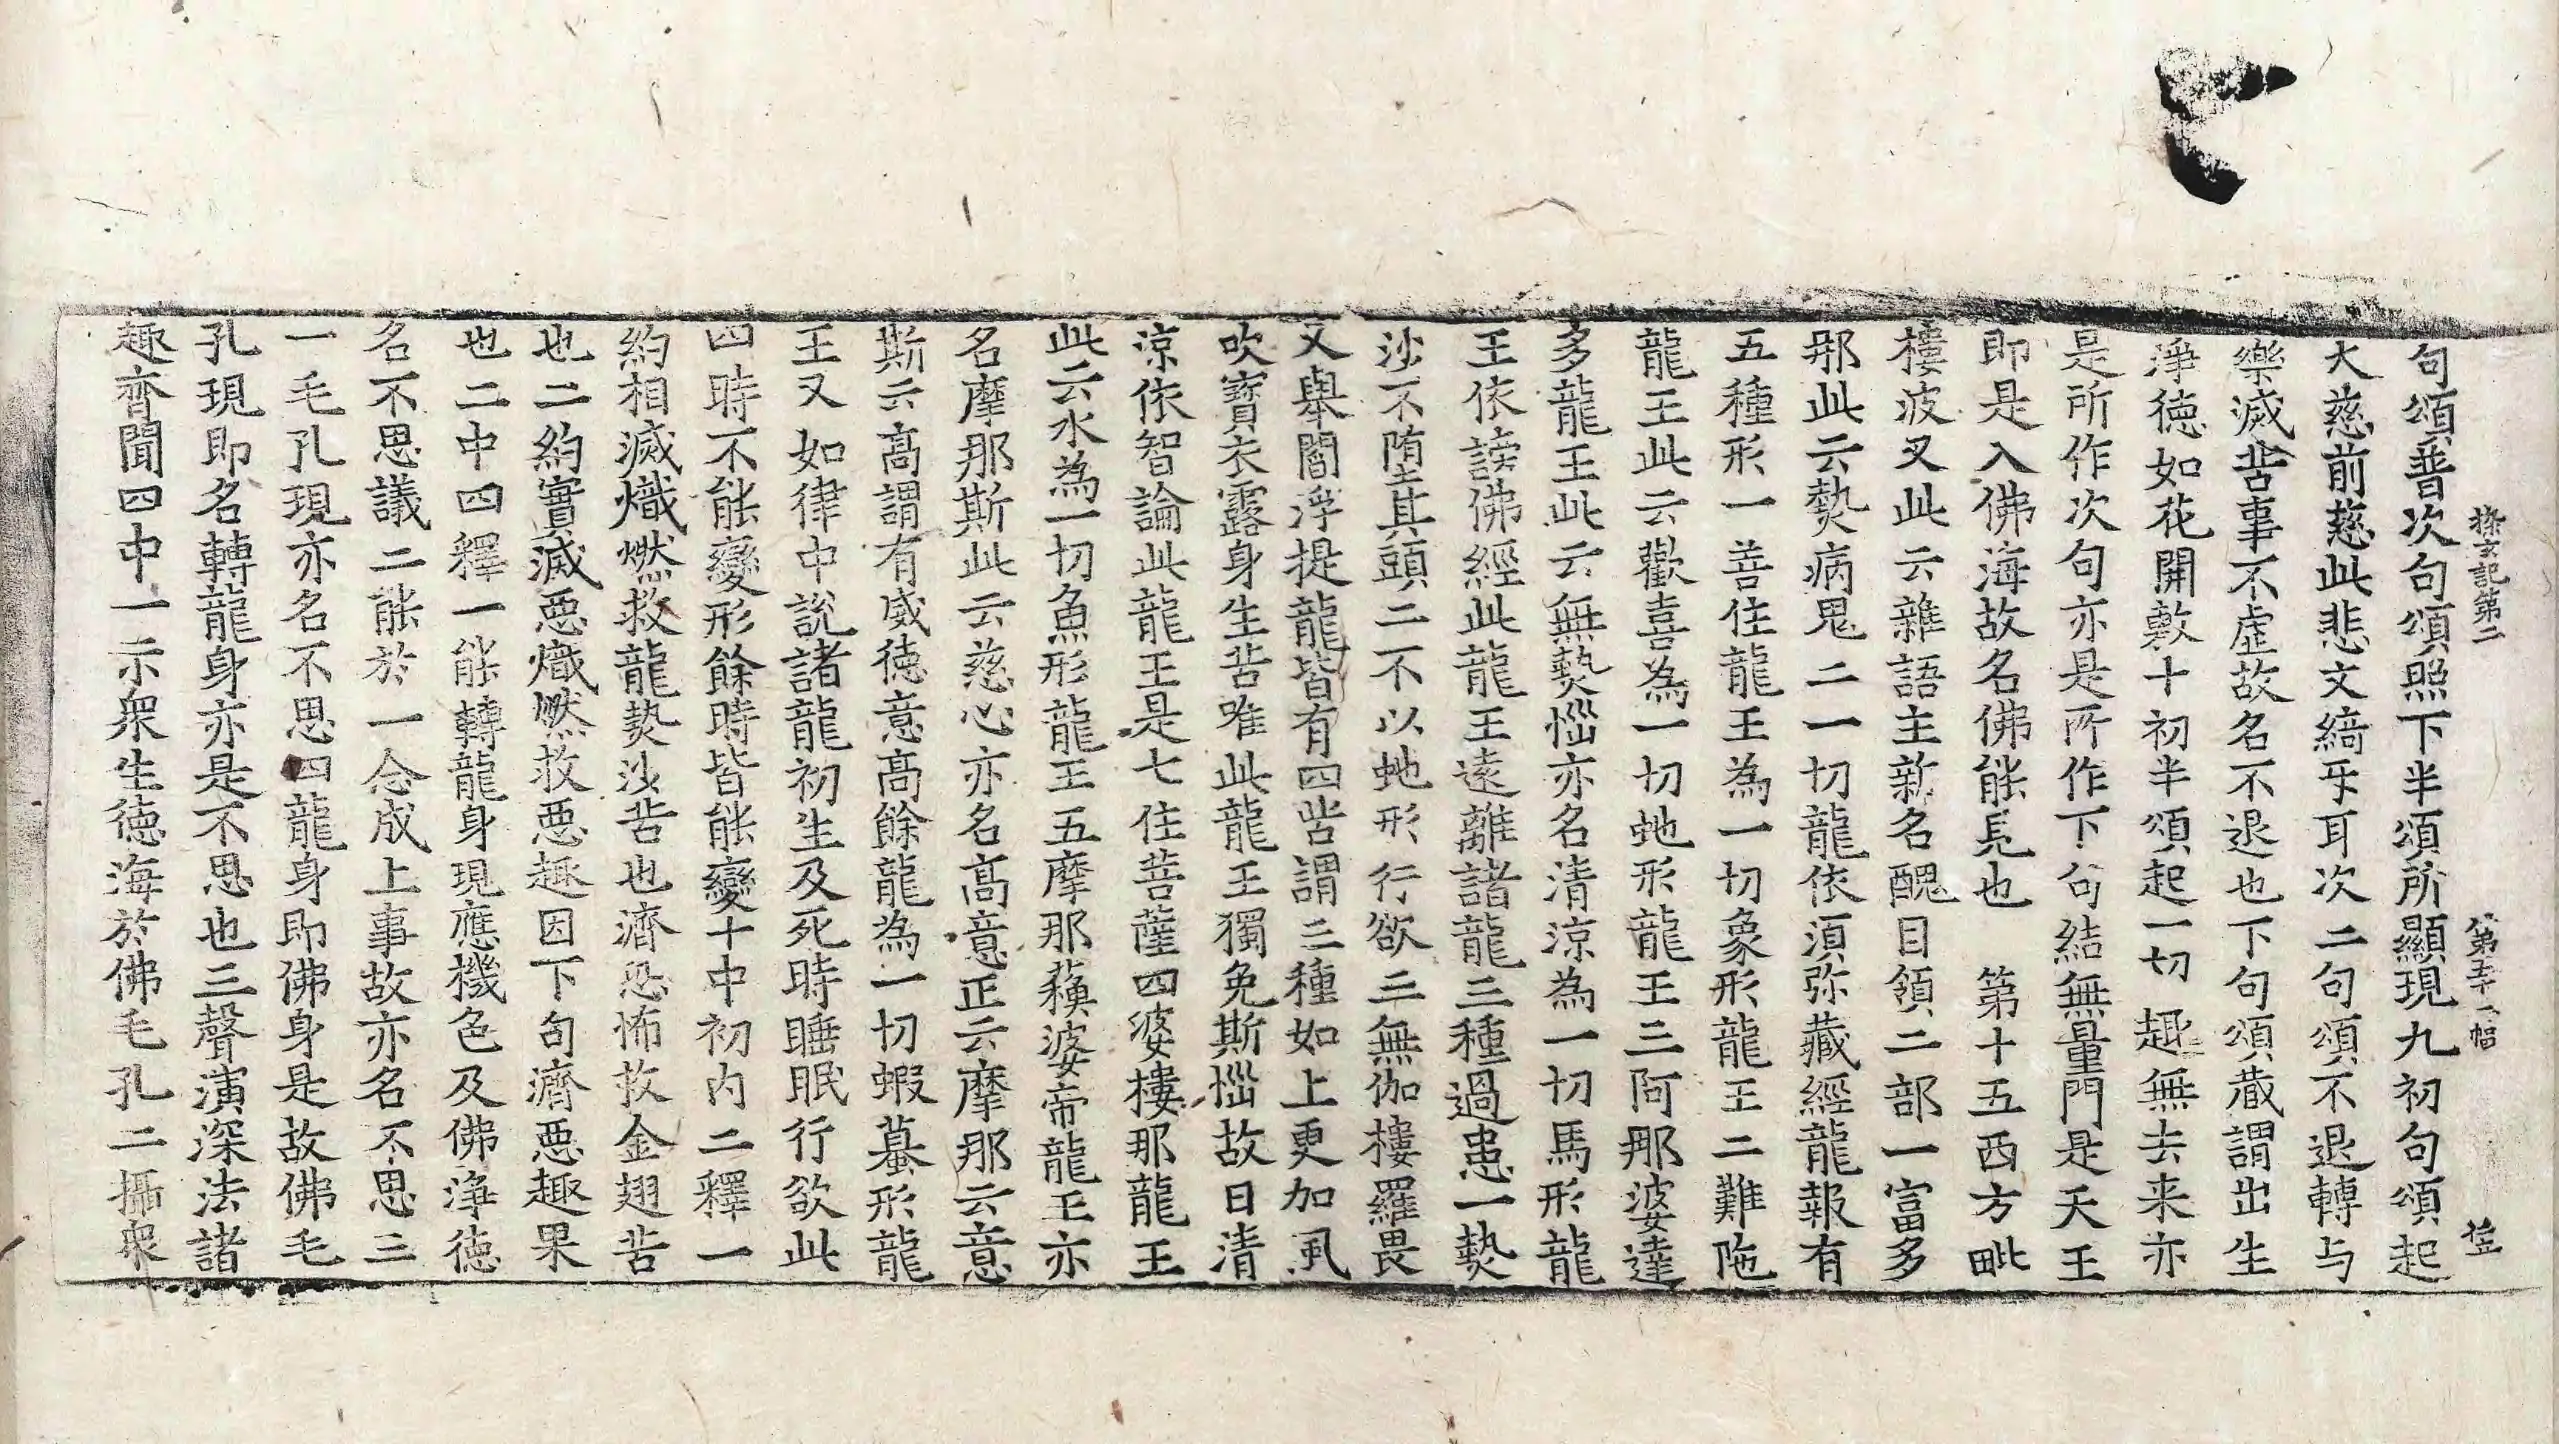 探玄記第二　第五十一幅
句頌普次句頌照下半頌所顯現九初句頌起
大慈前慈此悲文綺牙耳次二句頌不退轉与
樂滅苦事不虛故名不退也下句頌蔵謂出生
淨徳如花開敷十初半頌起一切趣無去来亦
是所作次句亦是所作下句結無量門是天王
即是入佛海故名佛能見也　第十五西方毗
樓波叉此云雜語主新名醜目領二部一富多
那此云熱病鬼二一切龍依湏弥藏經龍報有
五種形一善住龍王為一切象形龍王二難陁
龍王此云歡喜為一切虵形龍王三阿那婆達
多龍王此云無熱惱亦名清涼為一切馬形龍
王依謗佛經此龍王遠離諸龍三種過患一熱
沙不堕其頭二不以虵形行欲三無伽樓羅畏
又舉閻浮提龍皆有四苦謂三種如上更加風
吹寶衣露身生苦唯此龍王獨免斯惱故曰清
涼依智論此龍王是七住菩薩四婆樓那龍王
此云水為一切魚形龍王五摩那蘓婆帝龍王亦
名摩那斯此云慈心亦名髙意正云摩那云意
斯云髙謂有威徳意髙餘龍為一切蝦蟇形龍
王又如律中說諸龍初生及死時睡眠行欲此
四時不能變形餘時皆能變十中初内二釋一
約相滅熾燃救龍熱沙苦也濟恐怖救金翅苦
也二約實滅惡熾燃救惡趣因下句濟惡趣果
也二中四釋一能轉龍身現應機色及佛淨徳
名不思議二能於一念成上事故亦名不思三
一毛孔現亦名不思四龍身即佛身是故佛毛
孔現即名轉龍身亦是不思也三聲演深法諸
趣齊聞四中一示衆生徳海於佛毛孔二攝衆